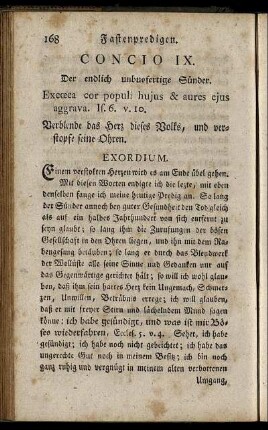 168 Fastenpredigen.
CONCIO IX.
Der endlich unbußfertige Sünder.
Excœca cor popul: hujus & aures ejus
aggrava. Is. 6. v. 10.
Verblende das Hertz dieses Volks, und ver-
stopfe seine Ohren.
EXORDIUM.
Einem verstokten Herzen wird es am Ende übel gehen.
Mit diesen Worten endigte ich die lezte, mit eben
denselben fange ich meine heutige Predig an. So lang
der Sünder annoch bey guter Gesundheit den Tod gleich
als auf ein halbes Jahrhundert von sich entfernt zu
seyn glaubt; so lang ihm die Zurufungen der bösen
Gesellschaft in den Ohren liegen, und ihn mit dem Ra-
bengesang betäuben; so lang er durch das Blendwerk
der Wollüste alle seine Sinne und Gedanken nur auf
das Gegenwärtige gerichtet hält; so will ich wohl glau-
ben, daß ihm sein hartes Herz kein Ungemach, Schmerz-
en, Unwillen, Betrübnis errege; ich will glauben,
daß er mit freyer Stirn und lächelndem Mund sagen
könne: ich habe gesündigt, und was ist mir Bö-
ses wiederfahren, Eccles. 5. v. 4. Sehet, ich habe
gesündigt; ich habe noch nicht gebeichtet; ich habe das
ungerechte Gut noch in meinem Besitz; ich bin noch
ganz ruhig und vergnügt in meinem alten verbottenen
Umgang,